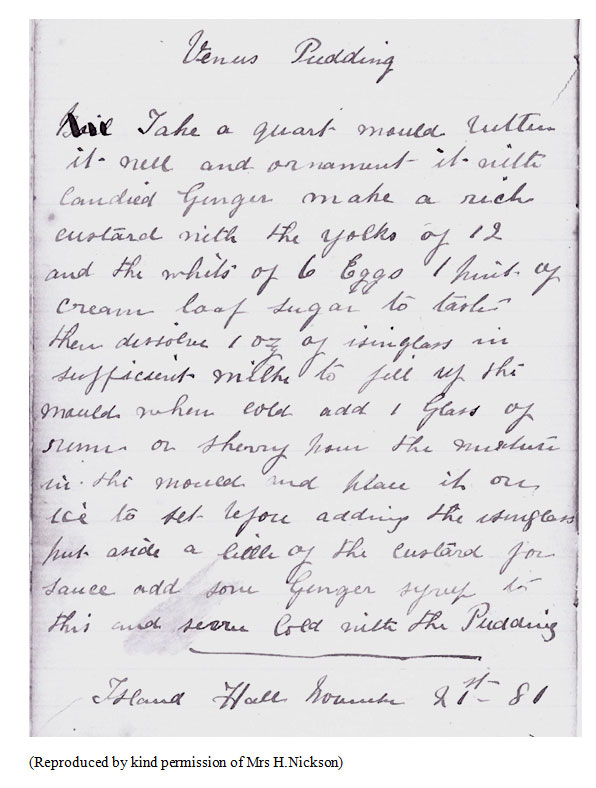 Venus Pudding
Take a quart mould butter
it well and ornament it with
Candied Ginger make a rich
custard with the yolks of 12
and the whits of 6 Eggs 1 pint of
cream loaf sugar to taste
then dissolve 1 oz of isinglass in
sufficient milk to fill up the
mould when cold add 1 Glass of
rum or sherry pour the mixture
in the mould and place it on
ice to set before adding the isinglass
put aside a little of the custard for
sauce add some Ginger syrup to
this and serve Cold with the Pudding
Island Hall November 21st - 81
(Reproduced by kind permission of Mrs H.Nickson)